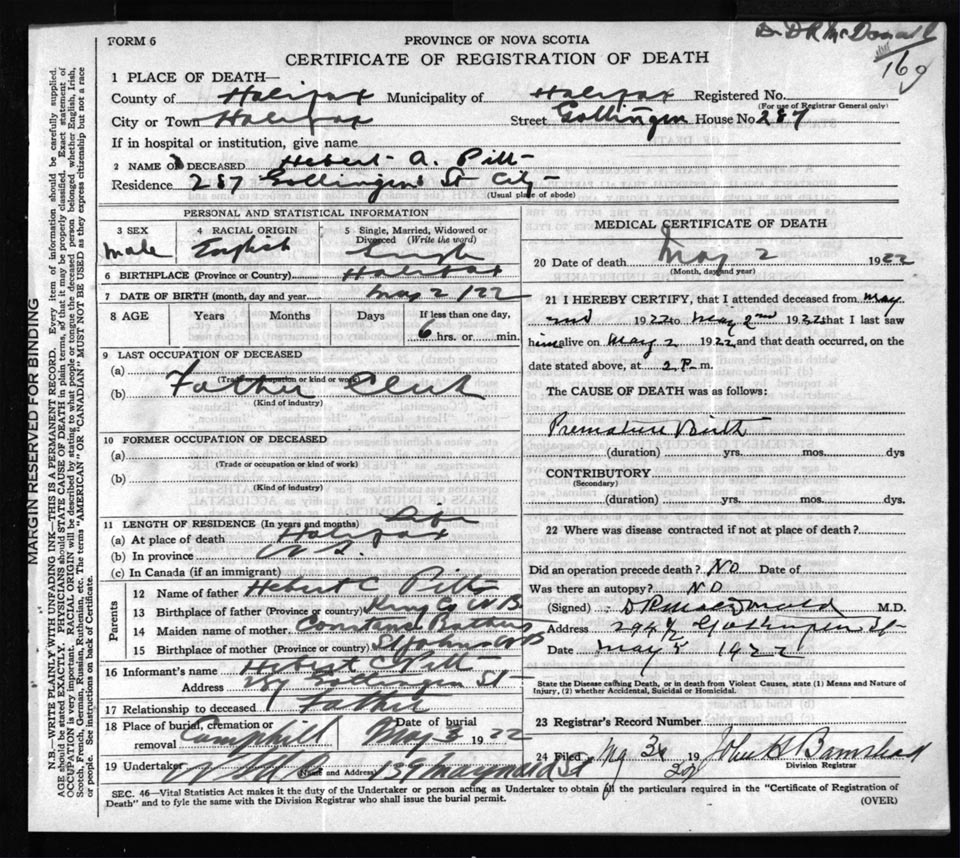 Dr D R McDonald
169
FORM 6
PROVINCE OF NOVA SCOTIA
CERTIFICATE OF REGISTRATION OF DEATH
1 PLACE OF DEATH—
County of Halifax Municipality of Halifax Registered No.
(For use of Registrar General only)
City or Town Halifax Street Gottingen House No 287
If in hospital or institution, give name
2 NAME OF DECEASED Hebert A. Pitt
Residence 287 Gottingen St City
(Usual place of abode)
PERSONAL AND STATISTICAL INFORMATION
3 SEX
male
4 RACIAL ORIGIN
English
5 Single, Married, Widowed or
Divorced (Write the word)
Single
6 BIRTHPLACE (Province or Country) Halifax
7 DATE OF BIRTH (month, day and year May 2/22
8 AGE Years Months Days If less than one day,
6 hrs. or min.
9 LAST OCCUPATION OF DECEASED
(a)
(Trade occupation or kind or work)
(b) Father Clerk
(Kind of industry)
10 FORMER OCCUPATION OF DECEASED
(a)
(Trade or occupation or kind of work)
(b)
(Kind of industry)
11 LENGTH OF RESIDENCE (In years and months) Life
(a) At place of death Halifax
(b) In province N S.
(c) In Canada (if an immigrant)
Parents
12 Name of father Hebert C. Pitt
13 Birthplace of father (Province or country) King Co N B
14 Maiden name of mother Constance
15 Birthplace of mother (Province or country) St Johns
16 Informant's name Hebert C Pitt
Address 287 Gottingen St
17 Relationship to deceased Father
18 Place of burial, cremation or
removal Camphill
Date of burial
May 3 1922
19 Undertaker 139 Maynard St
(Name and Address)
MEDICAL CERTIFICATE OF DEATH
20 Date of death May 2 1922
(Month, day and year)
21 I HEREBY CERTIFY, that I attended deceased from May
2nd 1922 to May 2nd 1922 that I last saw
him alive on May 2 1922 and that death occurred, on the
date stated above, at 2 P. m.
The CAUSE OF DEATH was as follows:
Premature Birth
(duration) yrs. mos. dys
CONTRIBUTORY
(Secondary)
(duration) yrs. mos. dys.
22 Where was disease contracted if not at place of death?
Did an operation precede death? NO Date of
Was there an autopsy? NO
(Signed) D R MacDonald M.D.
Address 294½ Gottingen St
Date May 5 1922
State the Disease causing Death, or in death from Violent Causes, state (1) Means and Nature of
Injury, (2) whether Accidental, Suicidal or Homicidal.
23 Registrar's Record Number
24 Filed 19 22 John H Barnstead
Division Registrar
SEC. 46—Vital Statistics Act makes it the duty of the Undertaker or person acting as Undertaker to obtain all the particulars required in the "Certificate of Registration of
Death" and to fyle the same with the Division Registrar who shall issue the burial permit.
(OVER)
MARGIN RESERVED FOR BINDING
N.B.—WRITE PLAINLY WITH UNFADING INK—THIS IS A PERMANENT RECORD. Every item of information should be carefully supplied.
AGE should be stated EXACTLY. PHYSICIANS should STATE CAUSE OF DEATH in plain terms, so that it may be properly classified. Exact statement of
OCCUPATION is very important. RACIAL ORIGIN will be described by stating to what people or tongue the deceased person belonged whether English, Irish,
Scotch, French, German, Russian, Ruthenian, etc. The terms "AMERICAN" OR "CANADIAN" MUST NOT BE USED as they express citizenship but not a race
or people. See instructions on back of Certificate.